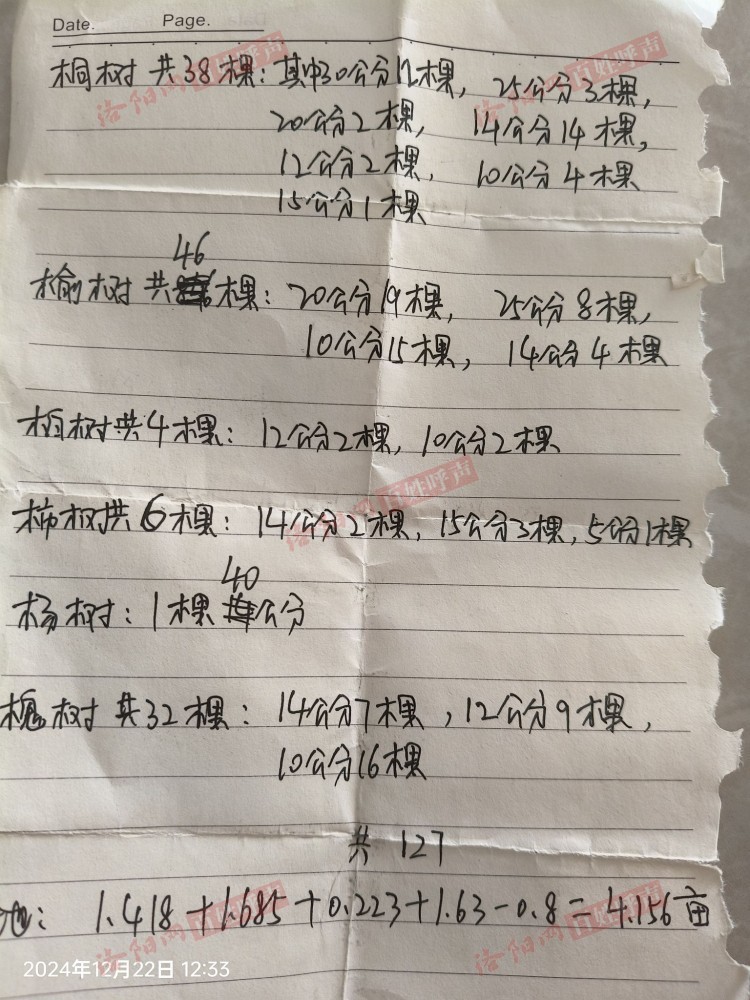 Date. Page.
桐树共38棵：其中30公分12棵，25公分3棵，
20公分2棵，14公分14棵，
12公分2棵，10公分4棵
15公分1棵
46
榆树共棵：20公分19棵，25公分8棵，
10公分15棵，14公分4棵
柏树共4棵：12公分2棵，10公分2棵
柿树共6棵：14公分2棵，15公分3棵，5公分1棵
40
杨树：1棵公分
槐树共32棵：14公分7棵，12公分9棵，
10公分16棵
共127
地：1.418+1.685+0.223+1.63-0.8=4.156亩
2024年12月22日 12:33
洛阳网百姓呼声